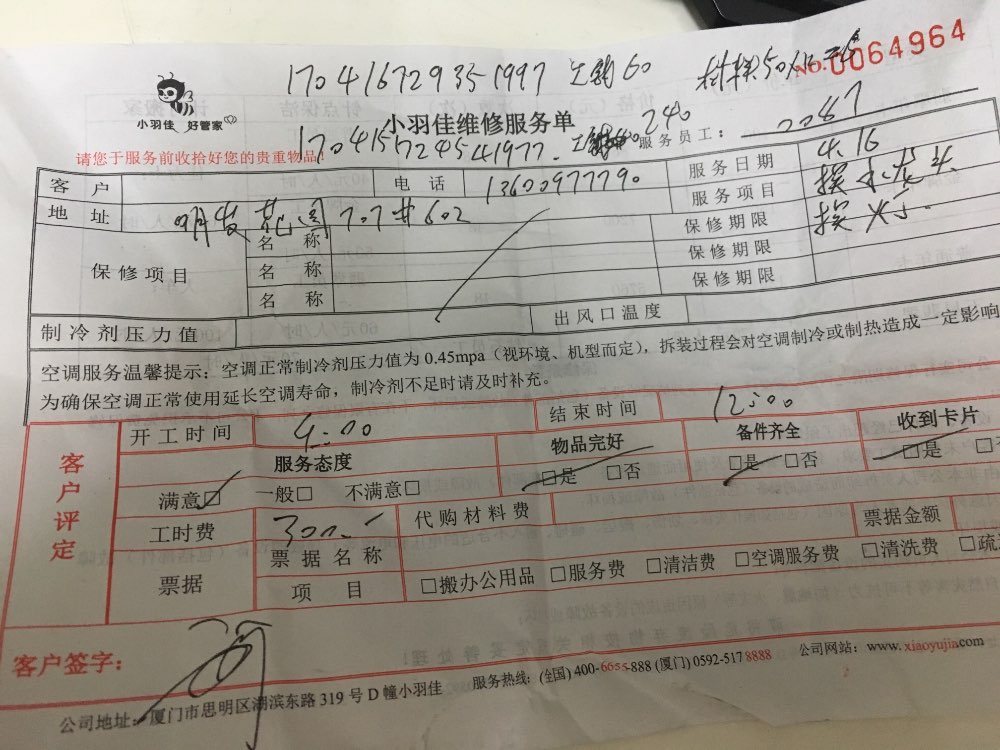 NO.0064964
170416729351997 工钱60
小羽佳 好管家
小羽佳维修服务单
240
请您于服务前收拾好您的贵重物品!
服务员工: 2087
客户 电话 13600977790 服务日期 4.16
地址 707#602 服务项目 换水龙头
保修项目 名称 保修期限 换
名称 保修期限
名称 保修期限
制冷剂压力值 出风口温度
空调服务温馨提示:空调正常制冷剂压力值为 0.45mpa(视环境、机型而定),拆装过程会对空调制冷或制热造成一定影响
为确保空调正常使用延长空调寿命,制冷剂不足时请及时补充。
客户评定
开工时间 9:00 结束时间 12:00
服务态度 物品完好 备件齐全 收到卡片
满意□ 一般□ 不满意□ □是 □否 □是 □否 □是
工时费 300 代购材料费 票据金额
票据 票据名称
项目 □搬办公用品 □服务费 □清洁费 □空调服务费 □清洗费 □疏
客户签字:
公司地址:厦门市思明区湖滨东路 319 号 D 幢小羽佳 服务热线: (全国) 400-6655-888 (厦门) 0592-517 8888 公司网站: www.xiaoyujia.com